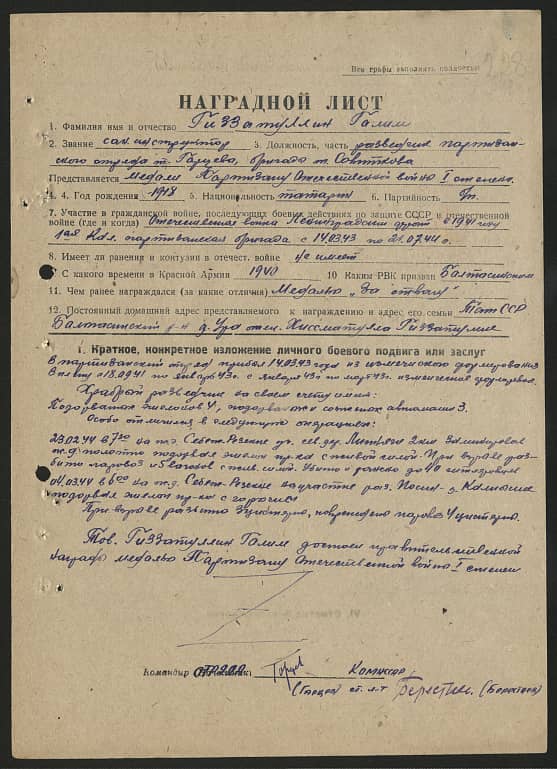 Все графы заполнять полностью
НАГРАДНОЙ ЛИСТ
1. Фамилия имя и отчество Гиззатуллин Галим
2. Звание сан.инструктор 3. Должность, часть разведчик партизан-
ского отряда т. Гарцева, бригада т.
Представляется медали Партизану Отечественной войны I степени.
4. 4. Год рождения 1918 5. Национальность татарин 6. Партийность
7. Участие в гражданской войне, последующих боевых действиях по защите СССР и отечественной
войне (где и когда) Отечественная война Ленинградский фронт с 1941 году
1ая Кал. партизанская бригада с 14.03.43 по 21.07.44 г.
8. Имеет ли ранения и контузии в отечест. войне не имеет
9. С какого времени в Красной Армии 1940 10 Каким РВК призван Балтасинском
11. Чем ранее награждался (за какие отличия) Медалью "За отвагу"
12. Постоянный домашний адрес представляемого к награждению и адрес его семьи Тат ССР
Балтасинский р-н д. Ура отец. Хиссматулла Гиззатуллин
I. Краткое, конкретное изложение личного боевого подвига или заслуг
В партизанский отряд прибыл 14.03.43 года из изменческого формирования
В плену с 18.09.41 по январь 43 г. с января 43 г. по март 43 г. изменческое формиров.
Храбрый разведчик на своем счету имеет:
Подорванных эшелонов 4, подорвал автомашин 3.
Особо отличился в следующих операциях:
23.02.44 в 7 00 на ж.д. Себеж-Резекне 2 км заминировав
ж.д. полотно подорвал эшелон пр-ка с живой силой. При взрыве раз-
бито паровоз и 5 вагонов с живой силой. Убито и ранено до 40 гитлеровцев
04.03.44 в на ж.д. Себеж-Резекне на участке раз.
подорвал эшелон пр-ка с горючим
При взрыве разбито 3 цистерны, повреждено паровоз 4 цистерны.
Тов. Гиззатуллин Галим достоин правительственной
награды медалью Партизану Отечественной войны I степени
Командир отряда Гарцев Комиссар
(Гарцев) ст. л-т